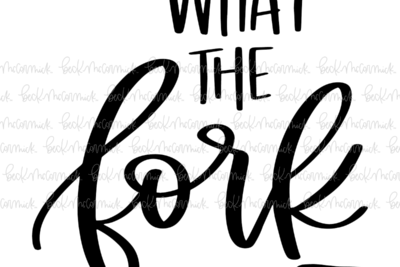 WHAT
THE
fork